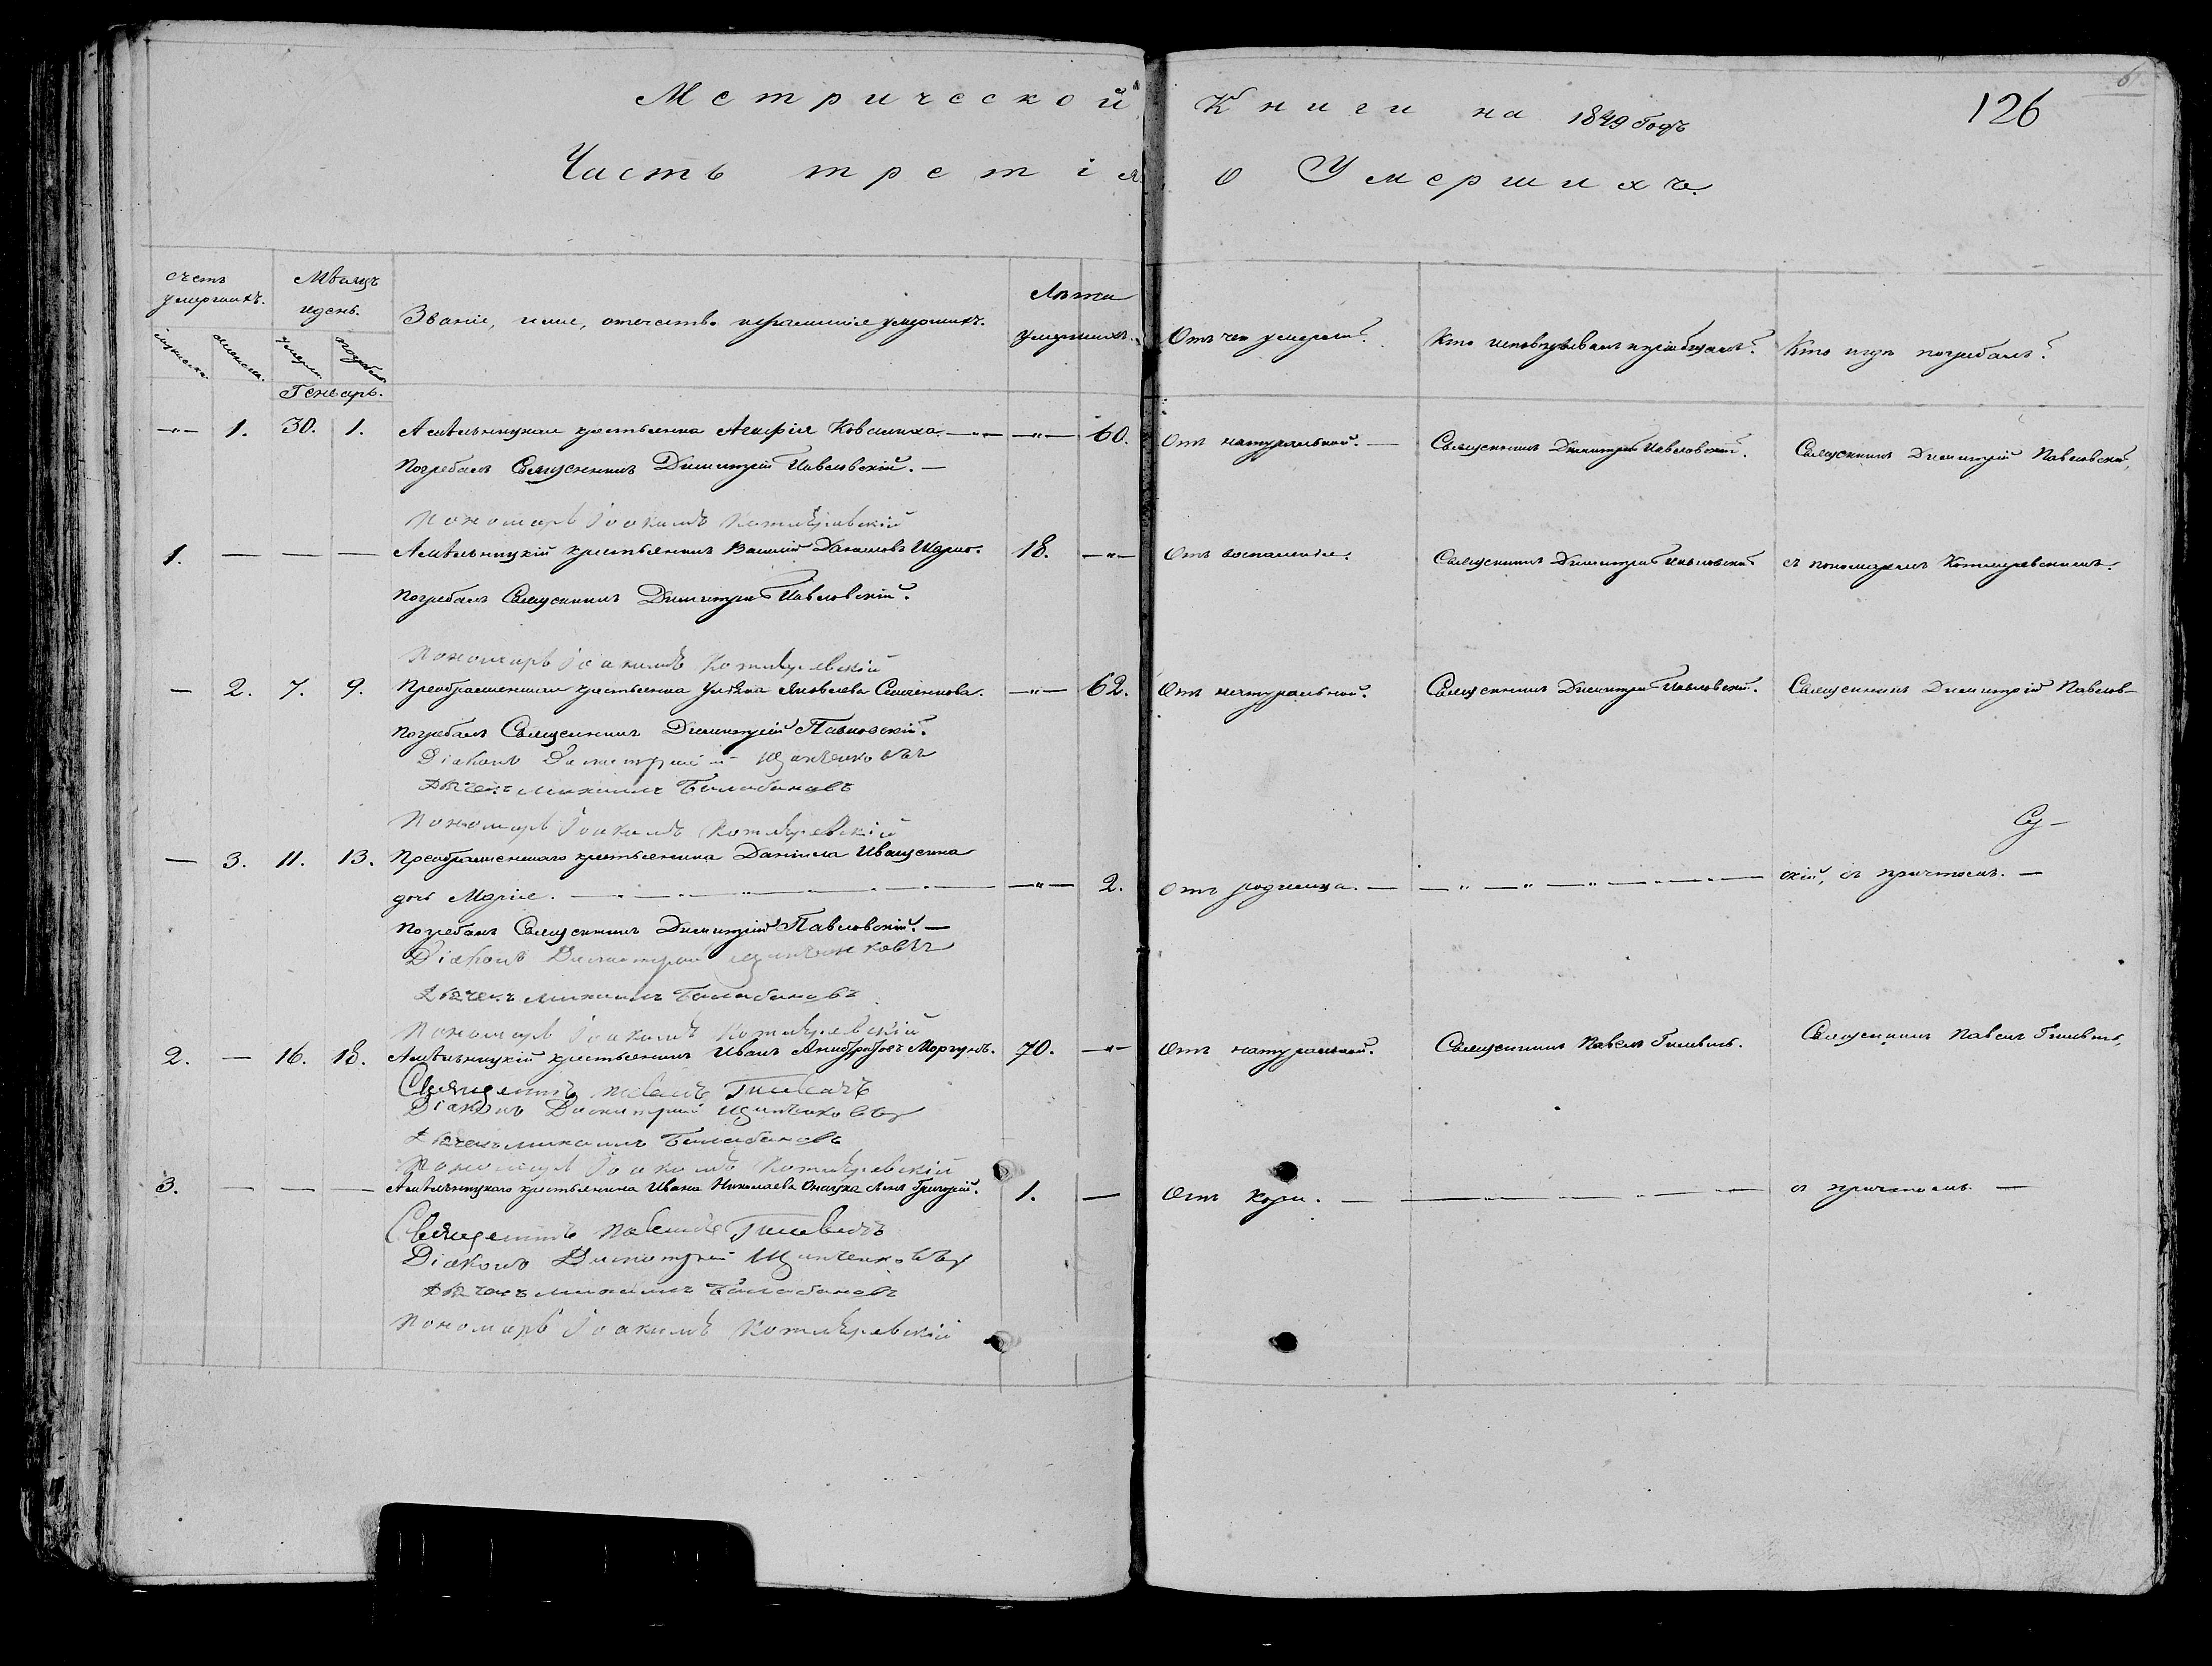 Метрической Книги на 1849 Годъ
126
Часть третія о Умершихъ.
счетъ умершихъ.
Мѣсяцъ и день.
Званіе, имя, отечество и фамилія умершихъ.
Лѣта умершихъ.
Отъ чего умерли?
Кто исповѣдывалъ и пріобщалъ?
Кто и гдѣ погребалъ?
Генварь.
— 1. 30. 1. крестьянка Агафія Ковалиха. — 60. Отъ натуральной. — Священникъ Димитрій Павловскій. Священникъ Димитрій Павловскій,
Погребалъ Священникъ Димитрій Павловскій. —
Пономарь Іоакимъ Котляревскій
1. — — — крестьянинъ Василій Даниловъ 18. — Отъ воспаленія. Священникъ Димитрій Павловскій съ пономаремъ Котляревскимъ.
Погребалъ Священникъ Димитрій Павловскій.
Пономарь Іоакимъ Котляревскій
— 2. 7. 9. Преображенская крестьянка Яковлева Семченкова. — 62. Отъ натуральной. Священникъ Димитрій Павловскій. Священникъ Димитрій Павлов-
Погребалъ Священникъ Димитрій Павловскій.
Діаконъ Димитрій
Дьячекъ Михаилъ Балабановъ
Пономарь Іоакимъ Котляревскій
— 3. 11. 13. Преображенскаго крестьянина Даніила Иващенка
дочь Марія. — 2. Отъ родимца. — — скій, съ причтомъ. —
Погребалъ Священникъ Димитрій Павловскій. —
Діаконъ Димитрій
Дьячекъ Михаилъ Балабановъ
Пономарь Іоакимъ Котляревскій
2. — 16. 18. крестьянинъ Иванъ Моргунъ. 70. — Отъ натуральной. Священникъ Павелъ Священникъ Павелъ
Священникъ Павелъ
Діаконъ Димитрій
Дьячекъ Михаилъ Балабановъ
Пономарь Іоакимъ Котляревскій
3. — — — крестьянина Ивана Николаева сынъ Григорій. 1. — Отъ кори. — — съ причтомъ. —
Священникъ Павелъ
Діаконъ Димитрій
Дьячекъ Михаилъ Балабановъ
Пономарь Іоакимъ Котляревскій